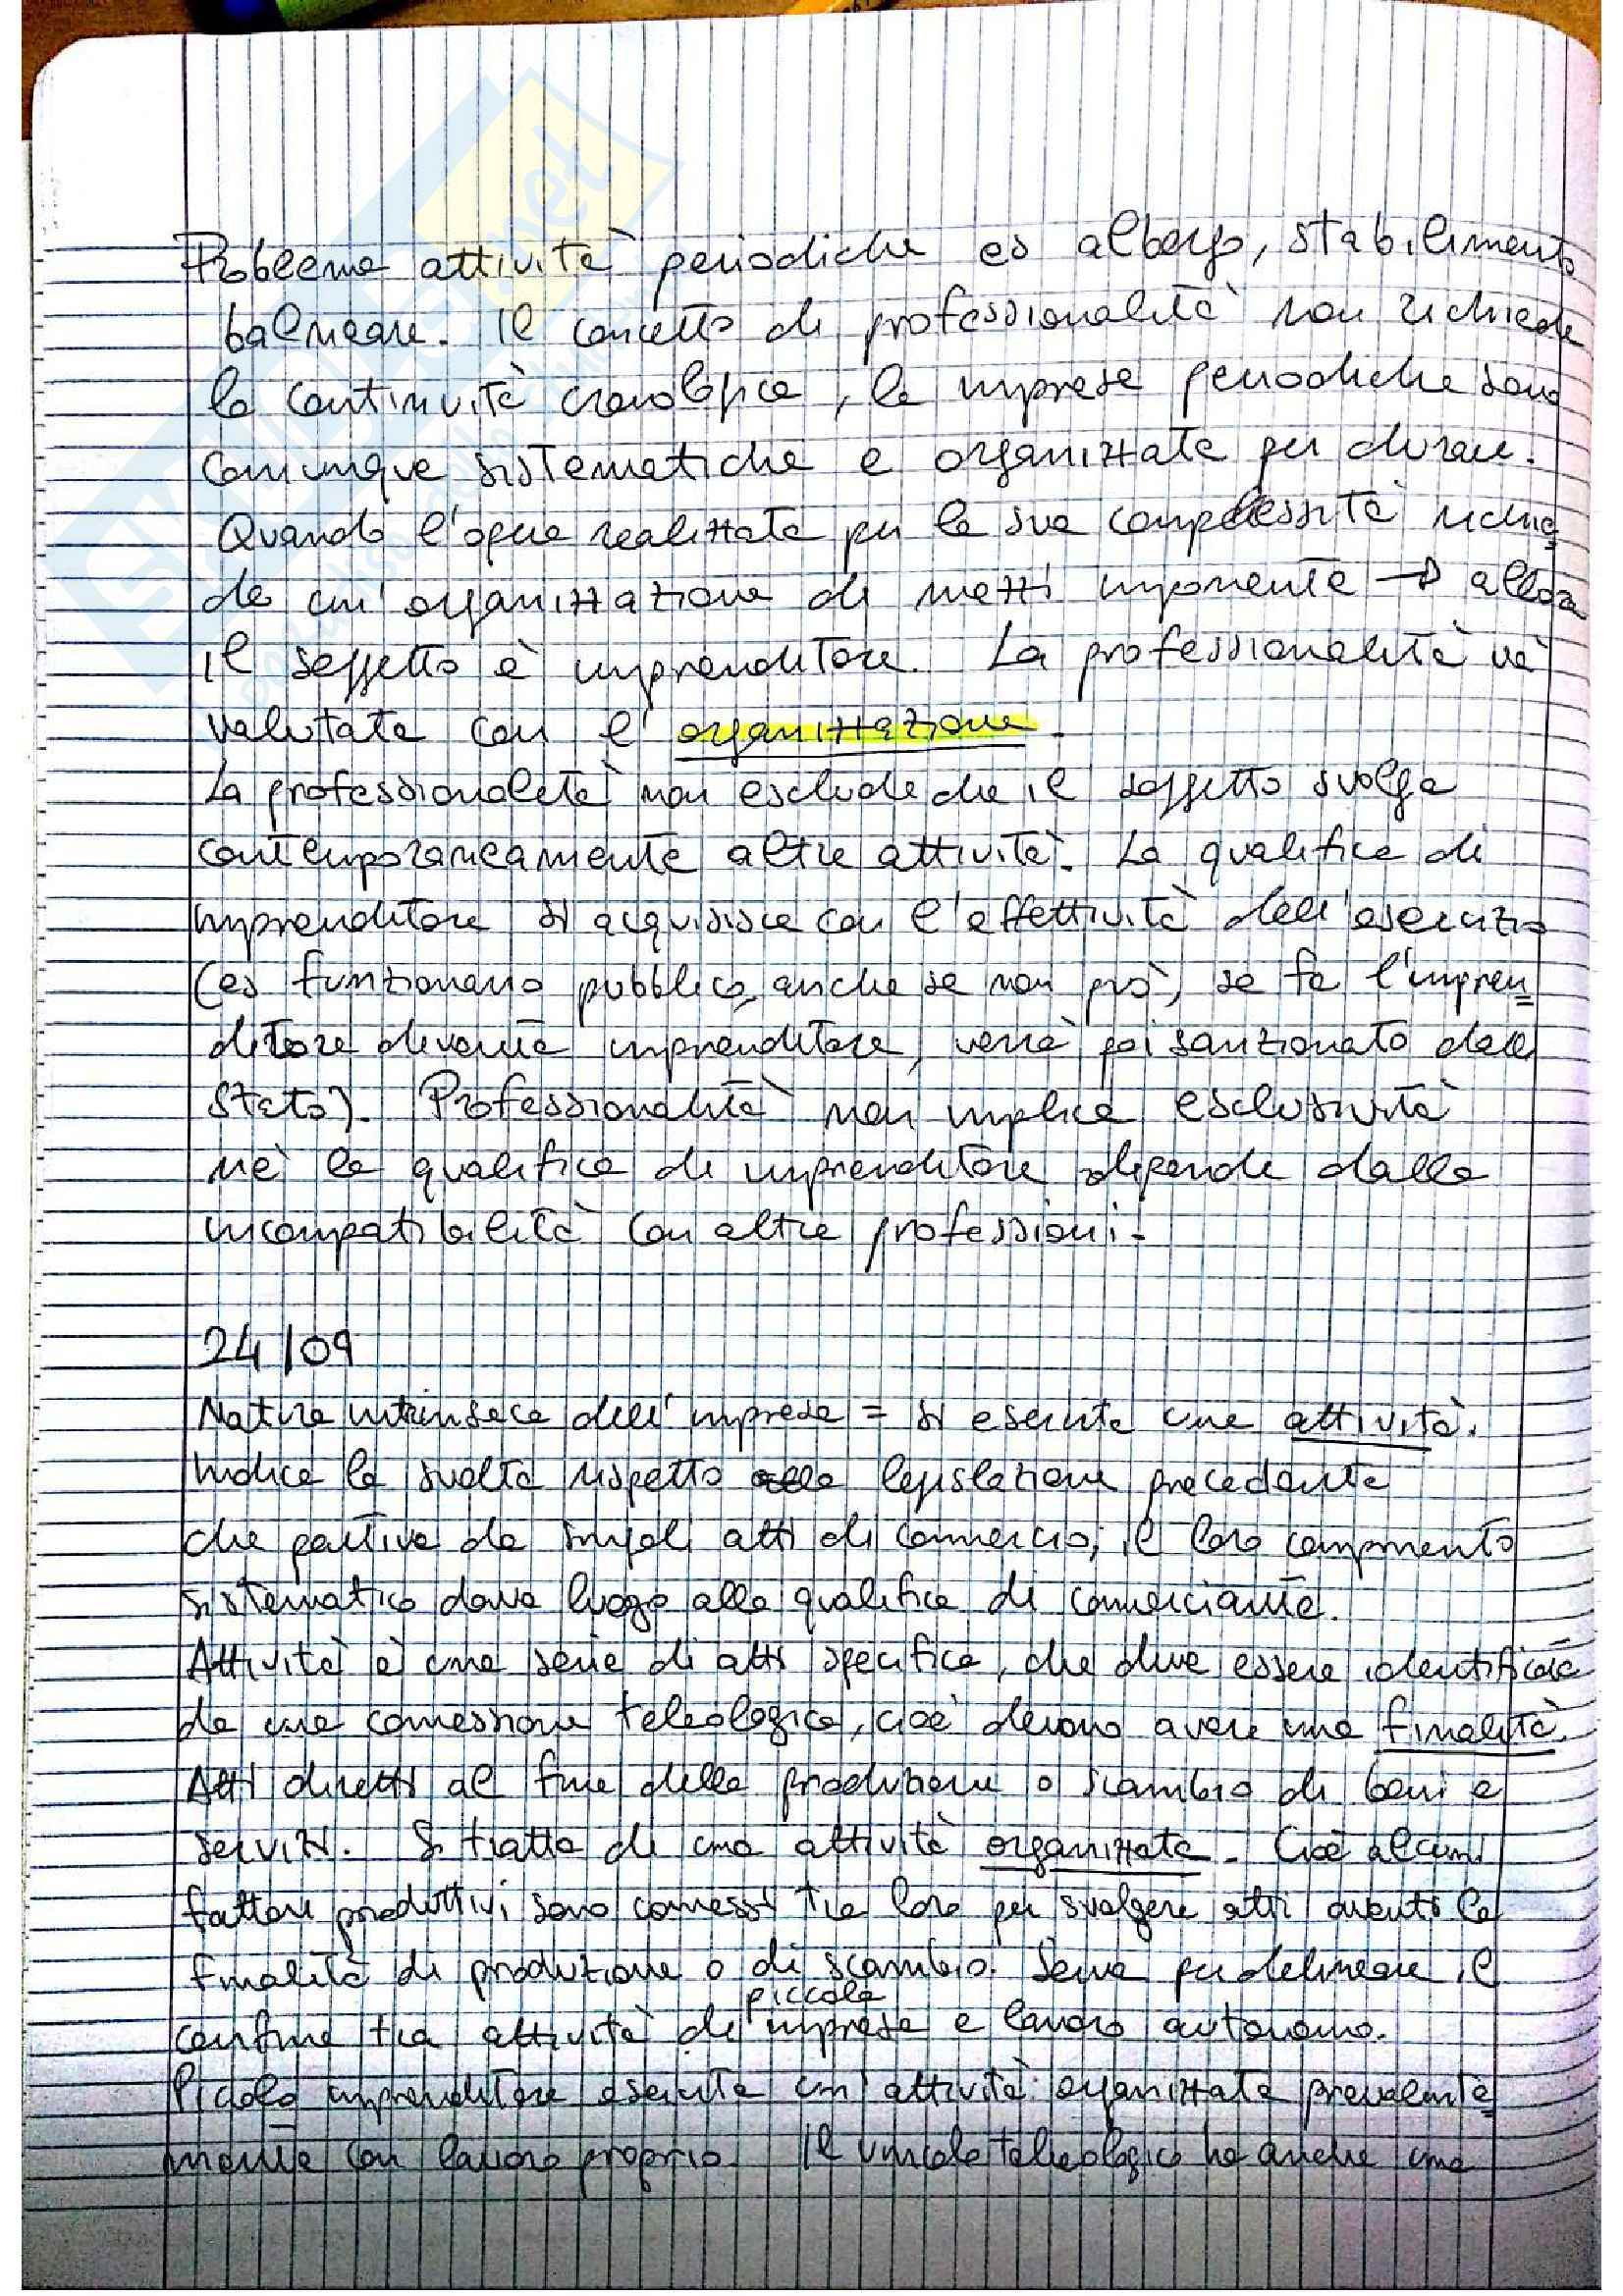 Problema attività periodiche es albergo, stabilimento
balneare. Il concetto di professionalità non richiede
la continuità cronologica, le imprese periodiche sono
comunque sistematiche e organizzate per durare.
Quando l'opera realizzata per la sua complessità richie=
de un'organizzazione di mezzi imponente → allora
il soggetto è imprenditore. La professionalità va
valutata con l'organizzazione.
La professionalità non esclude che il soggetto svolga
contemporaneamente altre attività. La qualifica di
imprenditore si acquisisce con l'effettività dell'esercizio
(es funzionario pubblico, anche se non può, se fa l'impren=
ditore diventa imprenditore, verrà poi sanzionato dallo
Stato). Professionalità non implica esclusività
nè la qualifica di imprenditore dipende dalla
incompatibilità con altre professioni.
24/09
Natura intrinseca dell'impresa = si esercita una attività.
Indica la svolta rispetto alla legislazione precedente
che partiva da singoli atti di commercio; il loro compimento
sistematico dava luogo alla qualifica di commerciante.
Attività è una serie di atti specifica, che deve essere identificata
da una connessione teleologica, cioè devono avere una finalità.
Atti diretti al fine della produzione o scambio di beni e
servizi. Si tratta di una attività organizzata. Cioè alcuni
fattori produttivi sono connessi tra loro per svolgere atti aventi la
finalità di produzione o di scambio. Serve per delineare il
confine tra attività di piccola impresa e lavoro autonomo.
Piccolo imprenditore esercita un'attività organizzata prevalente=
mente con lavoro proprio. Il vincolo teleologico ha anche una
skuola.net